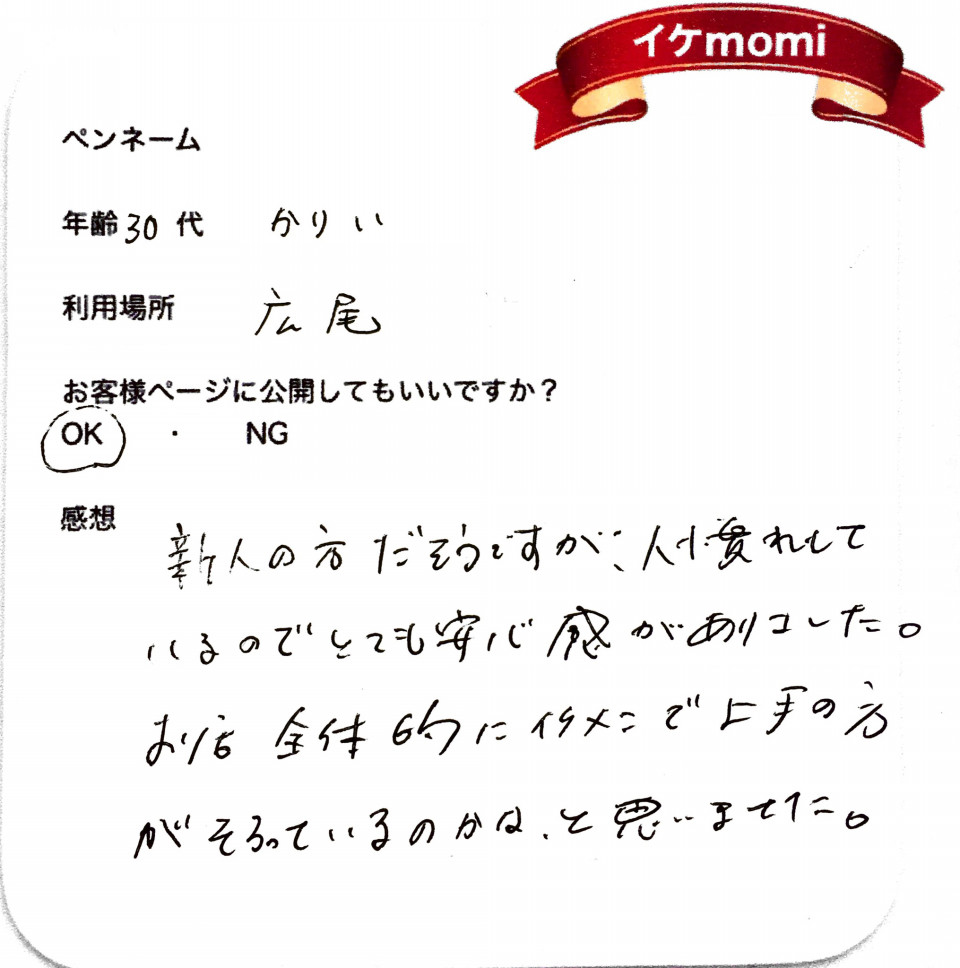 イケmomi
ペンネーム
年齢 30 代 かりい
利用場所 広尾
お客様ページに公開してもいいですか？
OK ・ NG
感想
新人の方だそうですが、人慣れして
いるのでとても安心感がありました。
お店全体的にイケメンで上手の方
がそろっているのかな、と思いました。